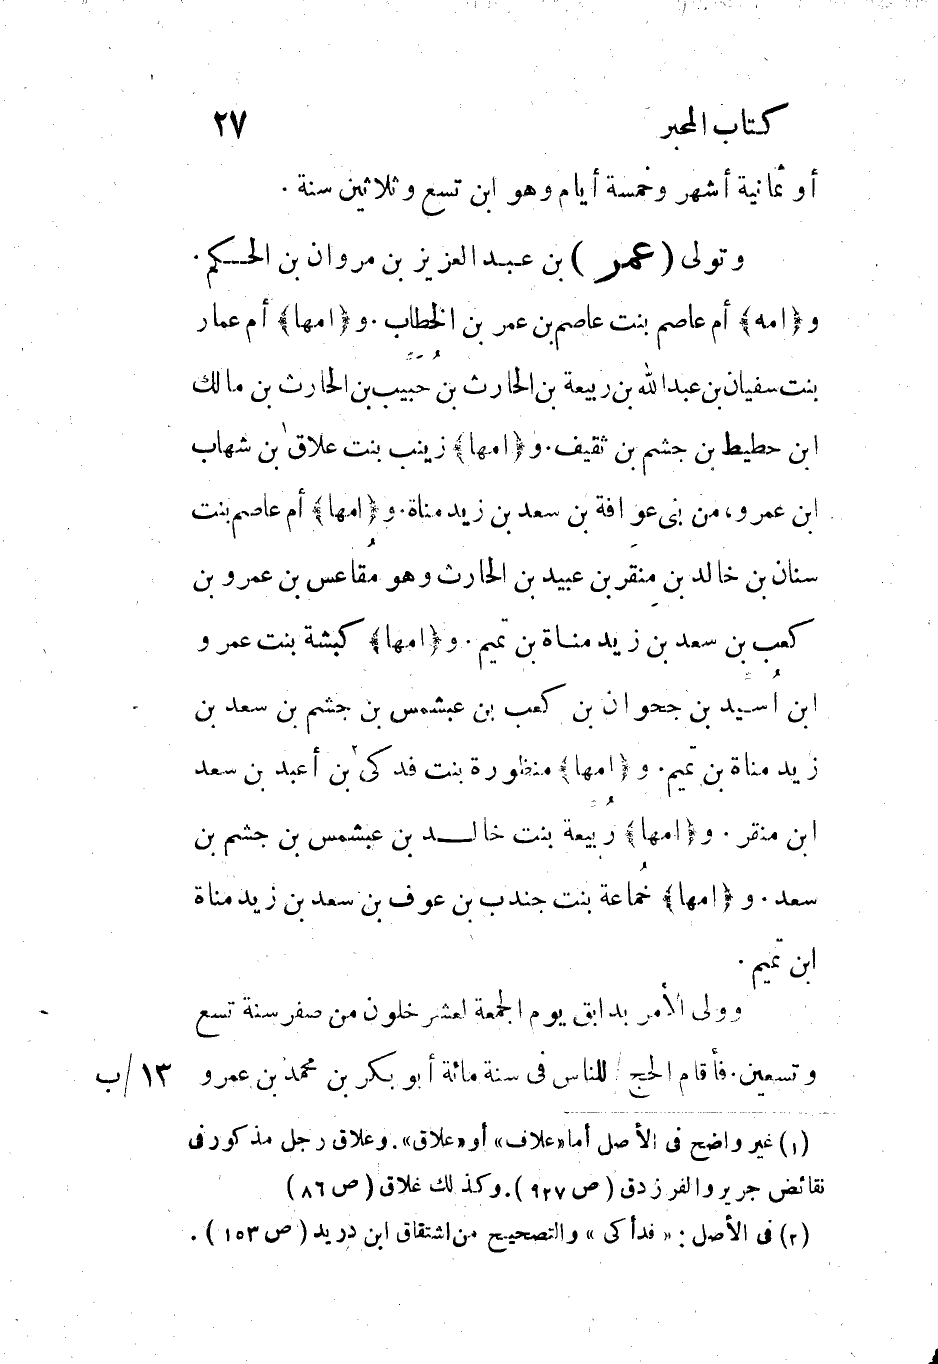 كتاب المحبر ٢٧
أو ثمانية أشهر وخمسة أيام وهو ابن تسع وثلاثين سنة .
وتولى (عمر) بن عبد العزيز بن مروان بن الحكم .
و﴿امه﴾ أم عاصم بنت عاصم بن عمر بن الخطاب . و﴿امها﴾ أم عمار
بنت سفيان بن عبد الله بن ربيعة بن الحارث بن حُبَيِّب بن الحارث بن مالك
ابن حطيط بن جشم بن ثقيف . و﴿امها﴾ زينب بنت علاق١ بن شهاب
ابن عمرو، من بنى عوافة بن سعد بن زيد مناة . و﴿امها﴾ أم عاصم بنت
سنان بن خالد بن مِنقَر بن عبيد بن الحارث وهو مُقاعس بن عمرو بن
كعب بن سعد بن زيد مناة بن تميم . و﴿امها﴾ كبشة بنت عمرو
ابن اُسَيِّد بن جحوان بن كعب بن عبشمس بن جشم بن سعد بن
زيد مناة بن تميم . و﴿امها﴾ منظورة بنت فدكى٢ بن أعبد بن سعد
ابن منقر . و﴿امها﴾ رُبَيِّعة بنت خالد بن عبشمس بن جشم بن
سعد . و﴿امها﴾ خُماعة بنت جندب بن عوف بن سعد بن زيد مناة
ابن تميم .
وولى الأمر بدابق يوم الجمعة لعشر خلون من صفر سنة تسع
وتسعين . فأقام الحج / للناس فى سنة مائة أبو بكر بن محمد بن عمرو ١٣/ب
(١) غير واضح فى الأصل أما «علاف» أو «علاق». وعلاق رجل مذكور فى
نقائض جرير والفرزدق (ص ٩٢٧). وكذلك غلاق (ص ٨٦)
(٢) فى الأصل : « فدأكى » والتصحيح من اشتقاق ابن دريد (ص ١٥٣) .